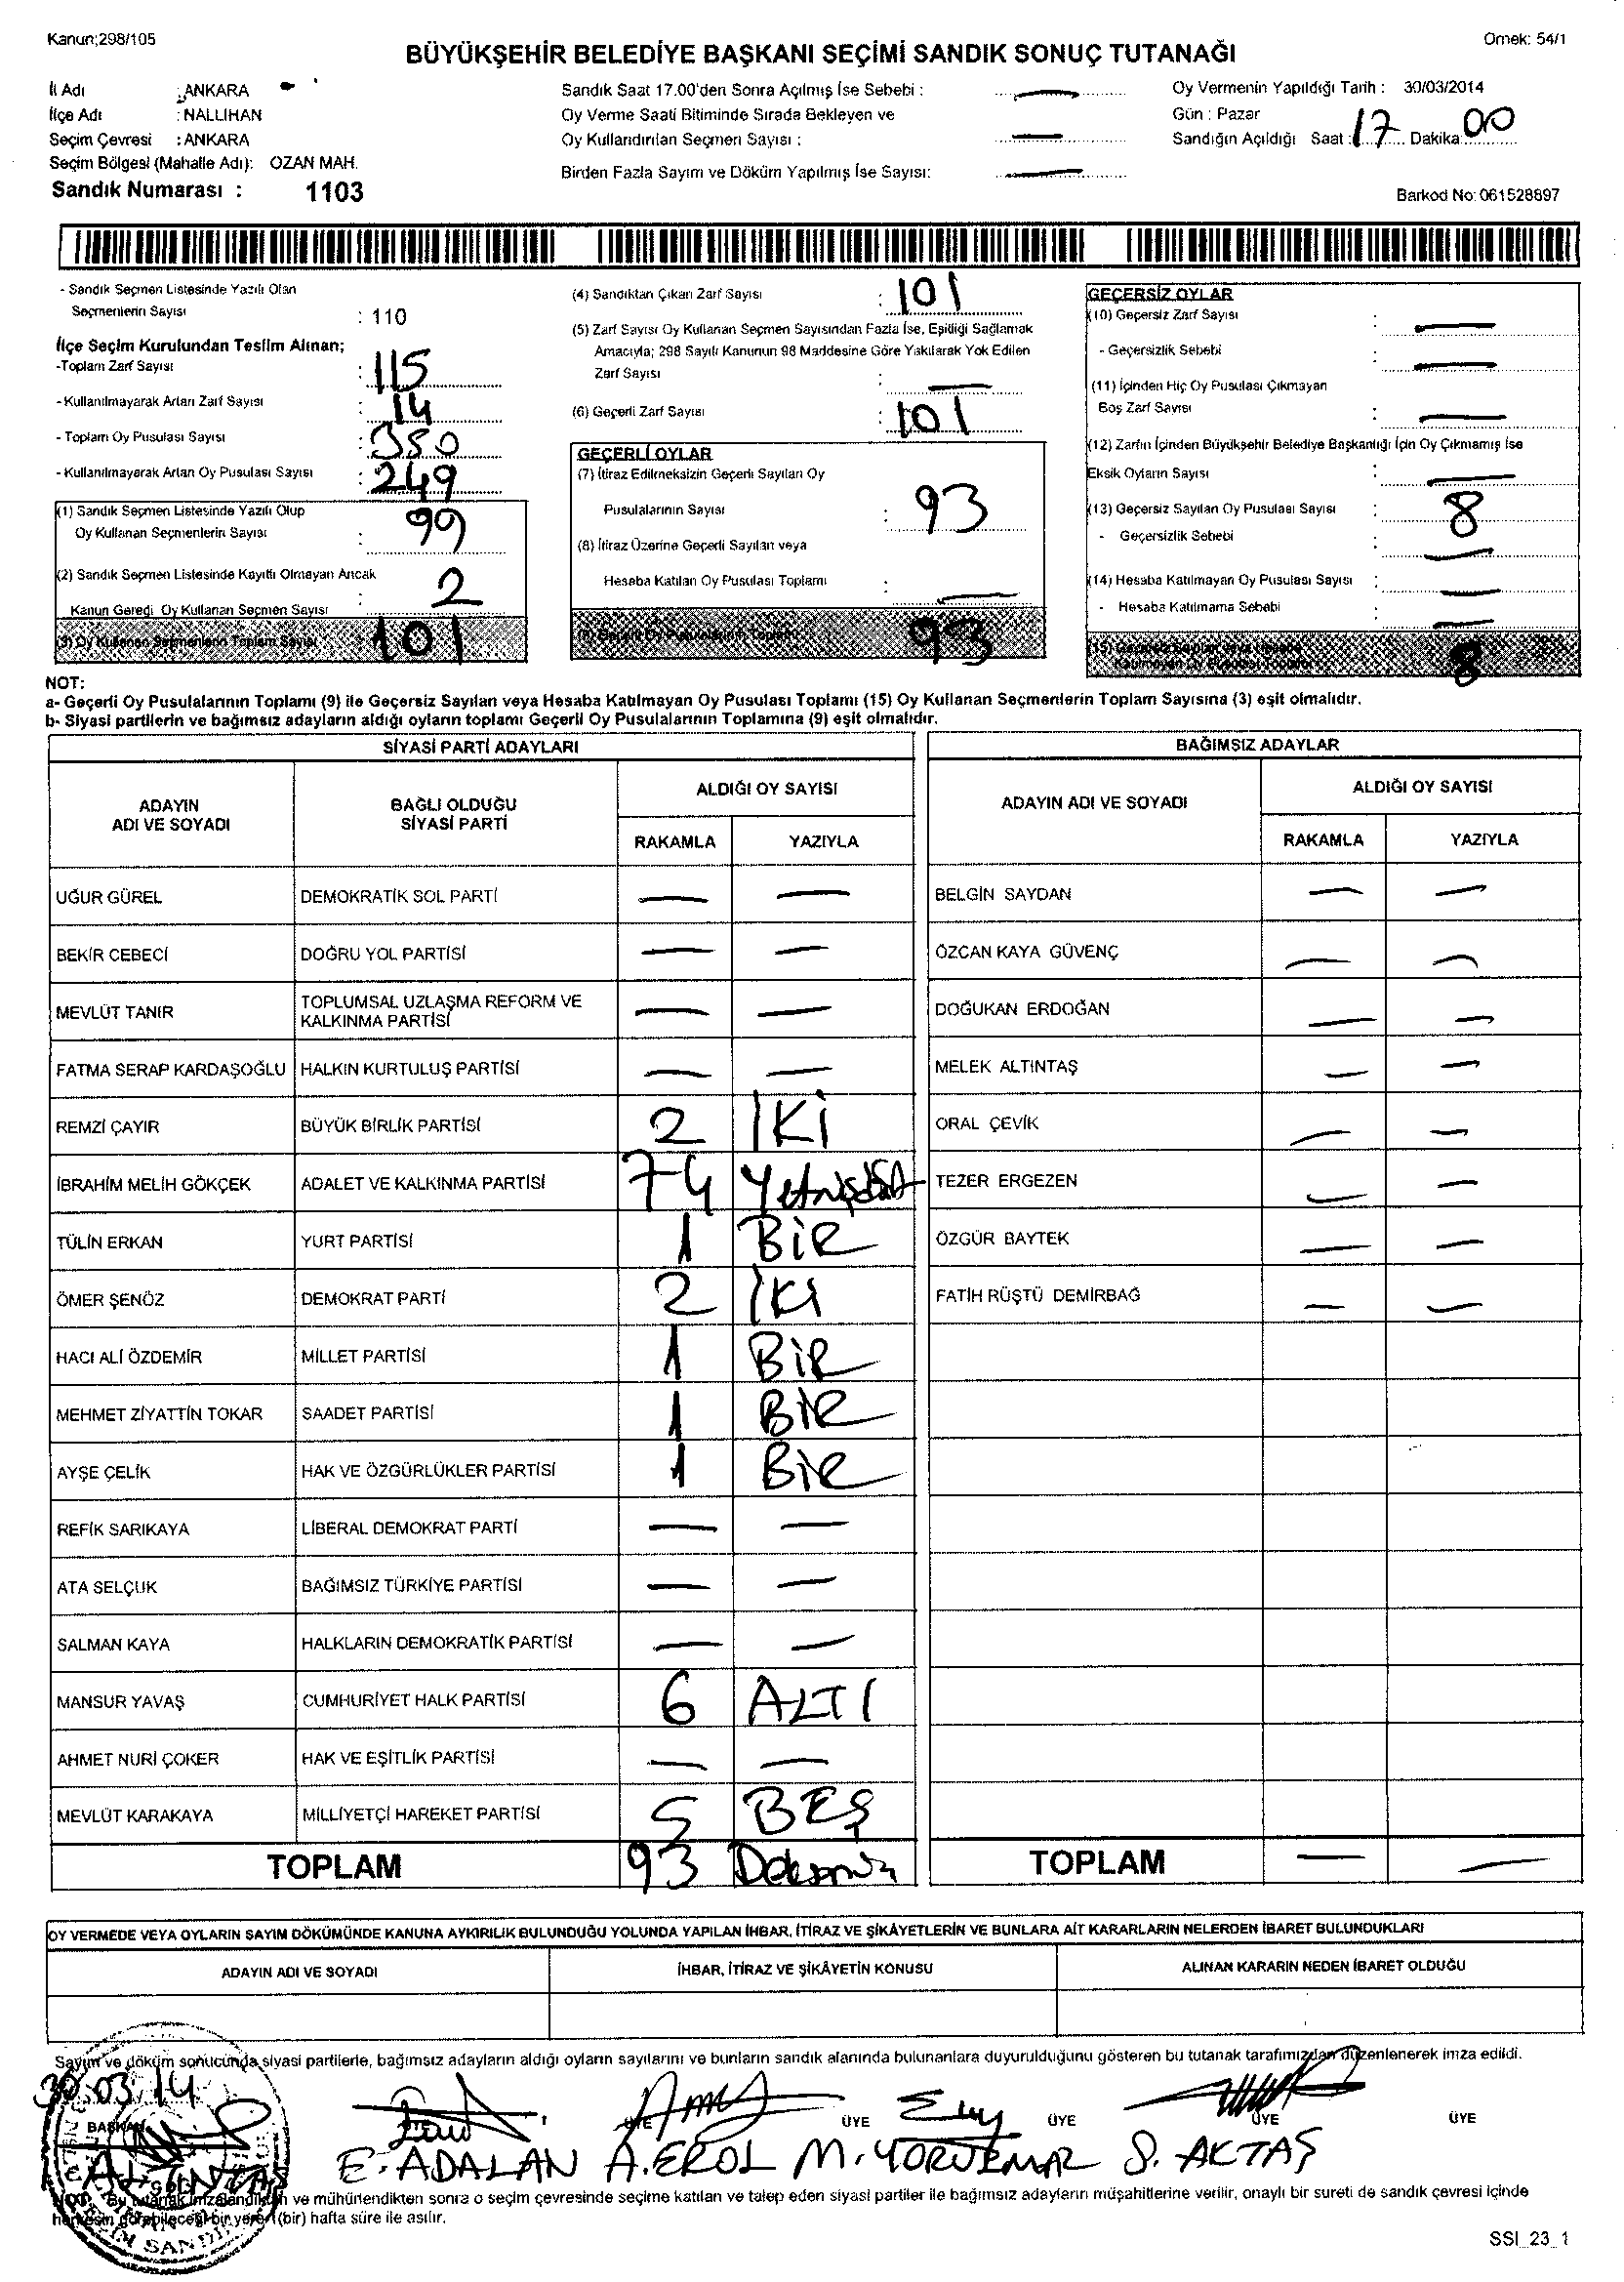 Kanun;298/105
Örnek: 54/1
BÜYÜKŞEHİR BELEDİYE BAŞKANI SEÇİMİ SANDIK SONUÇ TUTANAĞI
İl Adı : ANKARA
İlçe Adı : NALLIHAN
Seçim Çevresi : ANKARA
Seçim Bölgesi (Mahalle Adı): OZAN MAH.
Sandık Numarası : 1103
Sandık Saat 17.00'den Sonra Açılmış İse Sebebi : —
Oy Verme Saati Bitiminde Sırada Bekleyen ve
Oy Kullandırılan Seçmen Sayısı : —
Birden Fazla Sayım ve Döküm Yapılmış İse Sayısı: —
Oy Vermenin Yapıldığı Tarih : 30/03/2014
Gün : Pazar
Sandığın Açıldığı Saat : 17 Dakika: 00
Barkod No: 061528897
- Sandık Seçmen Listesinde Yazılı Olan
Seçmenlerin Sayısı : 110
İlçe Seçim Kurulundan Teslim Alınan;
-Toplam Zarf Sayısı : 115
- Kullanılmayarak Artan Zarf Sayısı : 14
- Toplam Oy Pusulası Sayısı : 350
- Kullanılmayarak Artan Oy Pusulası Sayısı : 249
(1) Sandık Seçmen Listesinde Yazılı Olup
Oy Kullanan Seçmenlerin Sayısı : 99
(2) Sandık Seçmen Listesinde Kayıtlı Olmayan Ancak
Kanun Gereği Oy Kullanan Seçmen Sayısı : 2
(3) Oy Kullanan Seçmenlerin Toplam Sayısı 101
(4) Sandıktan Çıkan Zarf Sayısı : 101
(5) Zarf Sayısı Oy Kullanan Seçmen Sayısından Fazla İse, Eşitliği Sağlamak
Amacıyla; 298 Sayılı Kanunun 98 Maddesine Göre Yakılarak Yok Edilen
Zarf Sayısı : —
(6) Geçerli Zarf Sayısı : 101
GEÇERLİ OYLAR
(7) İtiraz Edilmeksizin Geçerli Sayılan Oy
Pusulalarının Sayısı : 93
(8) İtiraz Üzerine Geçerli Sayılan veya
Hesaba Katılan Oy Pusulası Toplamı : —
(9) Geçerli Oy Pusulalarının Toplamı 93
GEÇERSİZ OYLAR
(10) Geçersiz Zarf Sayısı : —
- Geçersizlik Sebebi : —
(11) İçinden Hiç Oy Pusulası Çıkmayan
Boş Zarf Sayısı : —
(12) Zarfın İçinden Büyükşehir Belediye Başkanlığı İçin Oy Çıkmamış İse
Eksik Oyların Sayısı : —
(13) Geçersiz Sayılan Oy Pusulası Sayısı : 8
- Geçersizlik Sebebi : —
(14) Hesaba Katılmayan Oy Pusulası Sayısı : —
- Hesaba Katılmama Sebebi : —
(15) Geçersiz Sayılan veya Hesaba
Katılmayan Oy Pusulası Toplamı 8
NOT:
a- Geçerli Oy Pusulalarının Toplamı (9) ile Geçersiz Sayılan veya Hesaba Katılmayan Oy Pusulası Toplamı (15) Oy Kullanan Seçmenlerin Toplam Sayısına (3) eşit olmalıdır.
b- Siyasi partilerin ve bağımsız adayların aldığı oyların toplamı Geçerli Oy Pusulalarının Toplamına (9) eşit olmalıdır.
SİYASİ PARTİ ADAYLARI
ADAYIN ADI VE SOYADI BAĞLI OLDUĞU SİYASİ PARTİ ALDIĞI OY SAYISI
RAKAMLA YAZIYLA
UĞUR GÜREL DEMOKRATİK SOL PARTİ — —
BEKİR CEBECİ DOĞRU YOL PARTİSİ — —
MEVLÜT TANIR TOPLUMSAL UZLAŞMA REFORM VE KALKINMA PARTİSİ — —
FATMA SERAP KARDAŞOĞLU HALKIN KURTULUŞ PARTİSİ — —
REMZİ ÇAYIR BÜYÜK BİRLİK PARTİSİ 2 İKİ
İBRAHİM MELİH GÖKÇEK ADALET VE KALKINMA PARTİSİ 74 Yetmişdört
TÜLİN ERKAN YURT PARTİSİ 1 BİR
ÖMER ŞENÖZ DEMOKRAT PARTİ 2 İKİ
HACI ALİ ÖZDEMİR MİLLET PARTİSİ 1 BİR
MEHMET ZİYATTİN TOKAR SAADET PARTİSİ 1 BİR
AYŞE ÇELİK HAK VE ÖZGÜRLÜKLER PARTİSİ 1 BİR
REFİK SARIKAYA LİBERAL DEMOKRAT PARTİ — —
ATA SELÇUK BAĞIMSIZ TÜRKİYE PARTİSİ — —
SALMAN KAYA HALKLARIN DEMOKRATİK PARTİSİ — —
MANSUR YAVAŞ CUMHURİYET HALK PARTİSİ 6 ALTI
AHMET NURİ ÇOKER HAK VE EŞİTLİK PARTİSİ — —
MEVLÜT KARAKAYA MİLLİYETÇİ HAREKET PARTİSİ 5 BEŞ
TOPLAM 93 Doksanüç
BAĞIMSIZ ADAYLAR
ADAYIN ADI VE SOYADI ALDIĞI OY SAYISI
RAKAMLA YAZIYLA
BELGİN SAYDAN — —
ÖZCAN KAYA GÜVENÇ — —
DOĞUKAN ERDOĞAN — —
MELEK ALTINTAŞ — —
ORAL ÇEVİK — —
TEZER ERGEZEN — —
ÖZGÜR BAYTEK — —
FATİH RÜŞTÜ DEMİRBAĞ — —
TOPLAM — —
OY VERMEDE VEYA OYLARIN SAYIM DÖKÜMÜNDE KANUNA AYKIRILIK BULUNDUĞU YOLUNDA YAPILAN İHBAR, İTİRAZ VE ŞİKÂYETLERİN VE BUNLARA AİT KARARLARIN NELERDEN İBARET BULUNDUKLARI
ADAYIN ADI VE SOYADI İHBAR, İTİRAZ VE ŞİKÂYETİN KONUSU ALINAN KARARIN NEDEN İBARET OLDUĞU
Sayım ve döküm sonucunda siyasi partilerle, bağımsız adayların aldığı oyların sayılarını ve bunların sandık alanında bulunanlara duyurulduğunu gösteren bu tutanak tarafımızdan düzenlenerek imza edildi.
30.03.14
BAŞKAN ÜYE ÜYE ÜYE ÜYE ÜYE
ALTINTAŞ E. ADALAN A. EROL M. YORULMAZ S. AKTAŞ
NOT: Bu tutanak imzalandıktan ve mühürlendikten sonra o seçim çevresinde seçime katılan ve talep eden siyasi partiler ile bağımsız adayların müşahitlerine verilir, onaylı bir sureti de sandık çevresi içinde
herkesin görebileceği bir yere 1 (bir) hafta süre ile asılır.
SSI_23_1